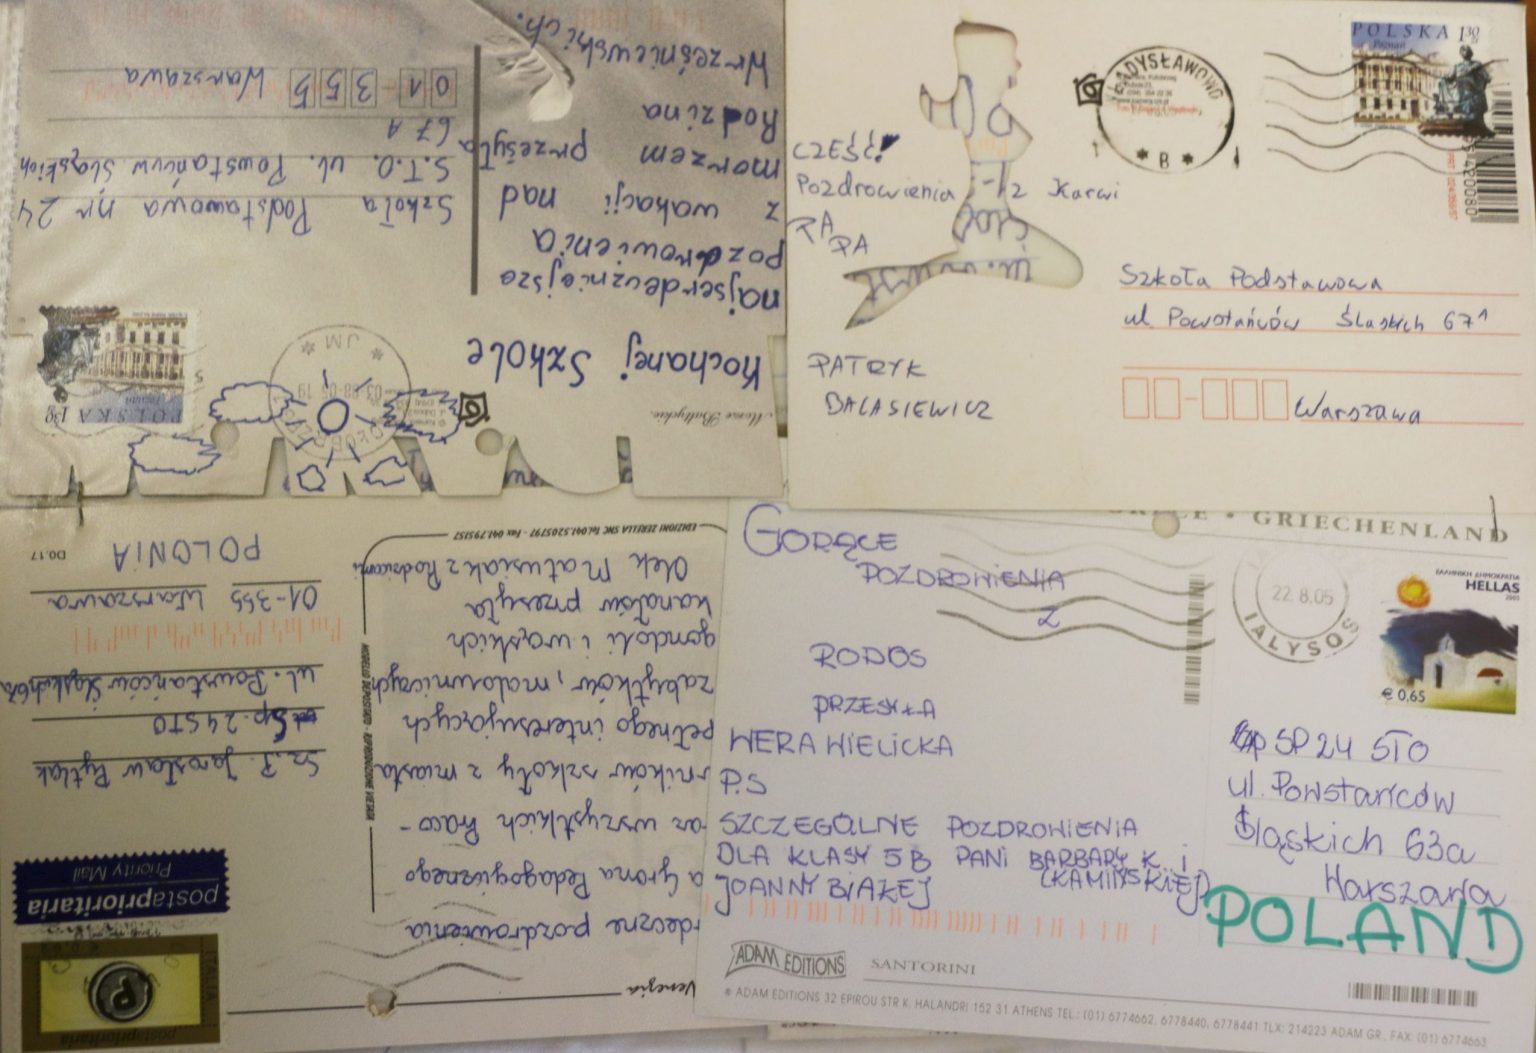 Morze Bałtyckie.
Kochanej Szkole
najserdeczniejsze
pozdrowienia
z wakacji nad
morzem przesyła
Rodzina
Wrześniewskich.
POLSKA 1,30
Poznań
JM
Szkoła Podstawowa nr 24
S.T.O. ul. Powstańców Śląskich
67A
01-355 Warszawa
CZEŚĆ!
Pozdrowienia z Karwi
PA
PA
PATRYK
BALASIEWICZ
WŁADYSŁAWOWO
* B *
POLSKA 1,30
Poznań
Szkoła Podstawowa
ul Powstańców Śląskich 67A
Warszawa
Venezia
deczne pozdrowienia
a Grona Pedagogicznego
az wszystkich Praco-
ników szkoły z miasta
pełnego interesujących
zabytków, malowniczych
gondoli i wąskich
kanałów przesyła
Olek Matusiak z Rodzicami
EDIZIONI ZERELLA SNC Tel. 041.5205797 - Fax 041.795157
MODELLO DEPOSITATO - RIPRODUZIONE VIETATA
ITALIA
postaprioritaria
P
postaprioritaria
Priority Mail
Sz. P. Jarosław Pytlak
Sp. 24 STO
ul. Powstańców Śląskich
01-355 Warszawa
POLONIA
D0.17
GRIECHENLAND
GORĄCE
POZDROWIENIA
Z
RODOS
PRZESYŁA
WERA WIELICKA
P.S
SZCZEGÓLNE POZDROWIENIA
DLA KLASY 5B PANI BARBARY K. i
(KAMIŃSKIEJ)
JOANNY BIAŁEJ
22.8.05
IALYSOS
ΕΛΛΗΝΙΚΗ ΔΗΜΟΚΡΑΤΙΑ
HELLAS
2005
€0,65
SP 24 STO
ul. Powstańców
Śląskich 63a
Warszawa
POLAND
ADAM EDITIONS SANTORINI
® ADAM EDITIONS 32 EPIROU STR K. HALANDRI 152 31 ATHENS TEL.: (01) 6774662, 6778440, 6778441 TLX: 214223 ADAM GR., FAX: (01) 6774663